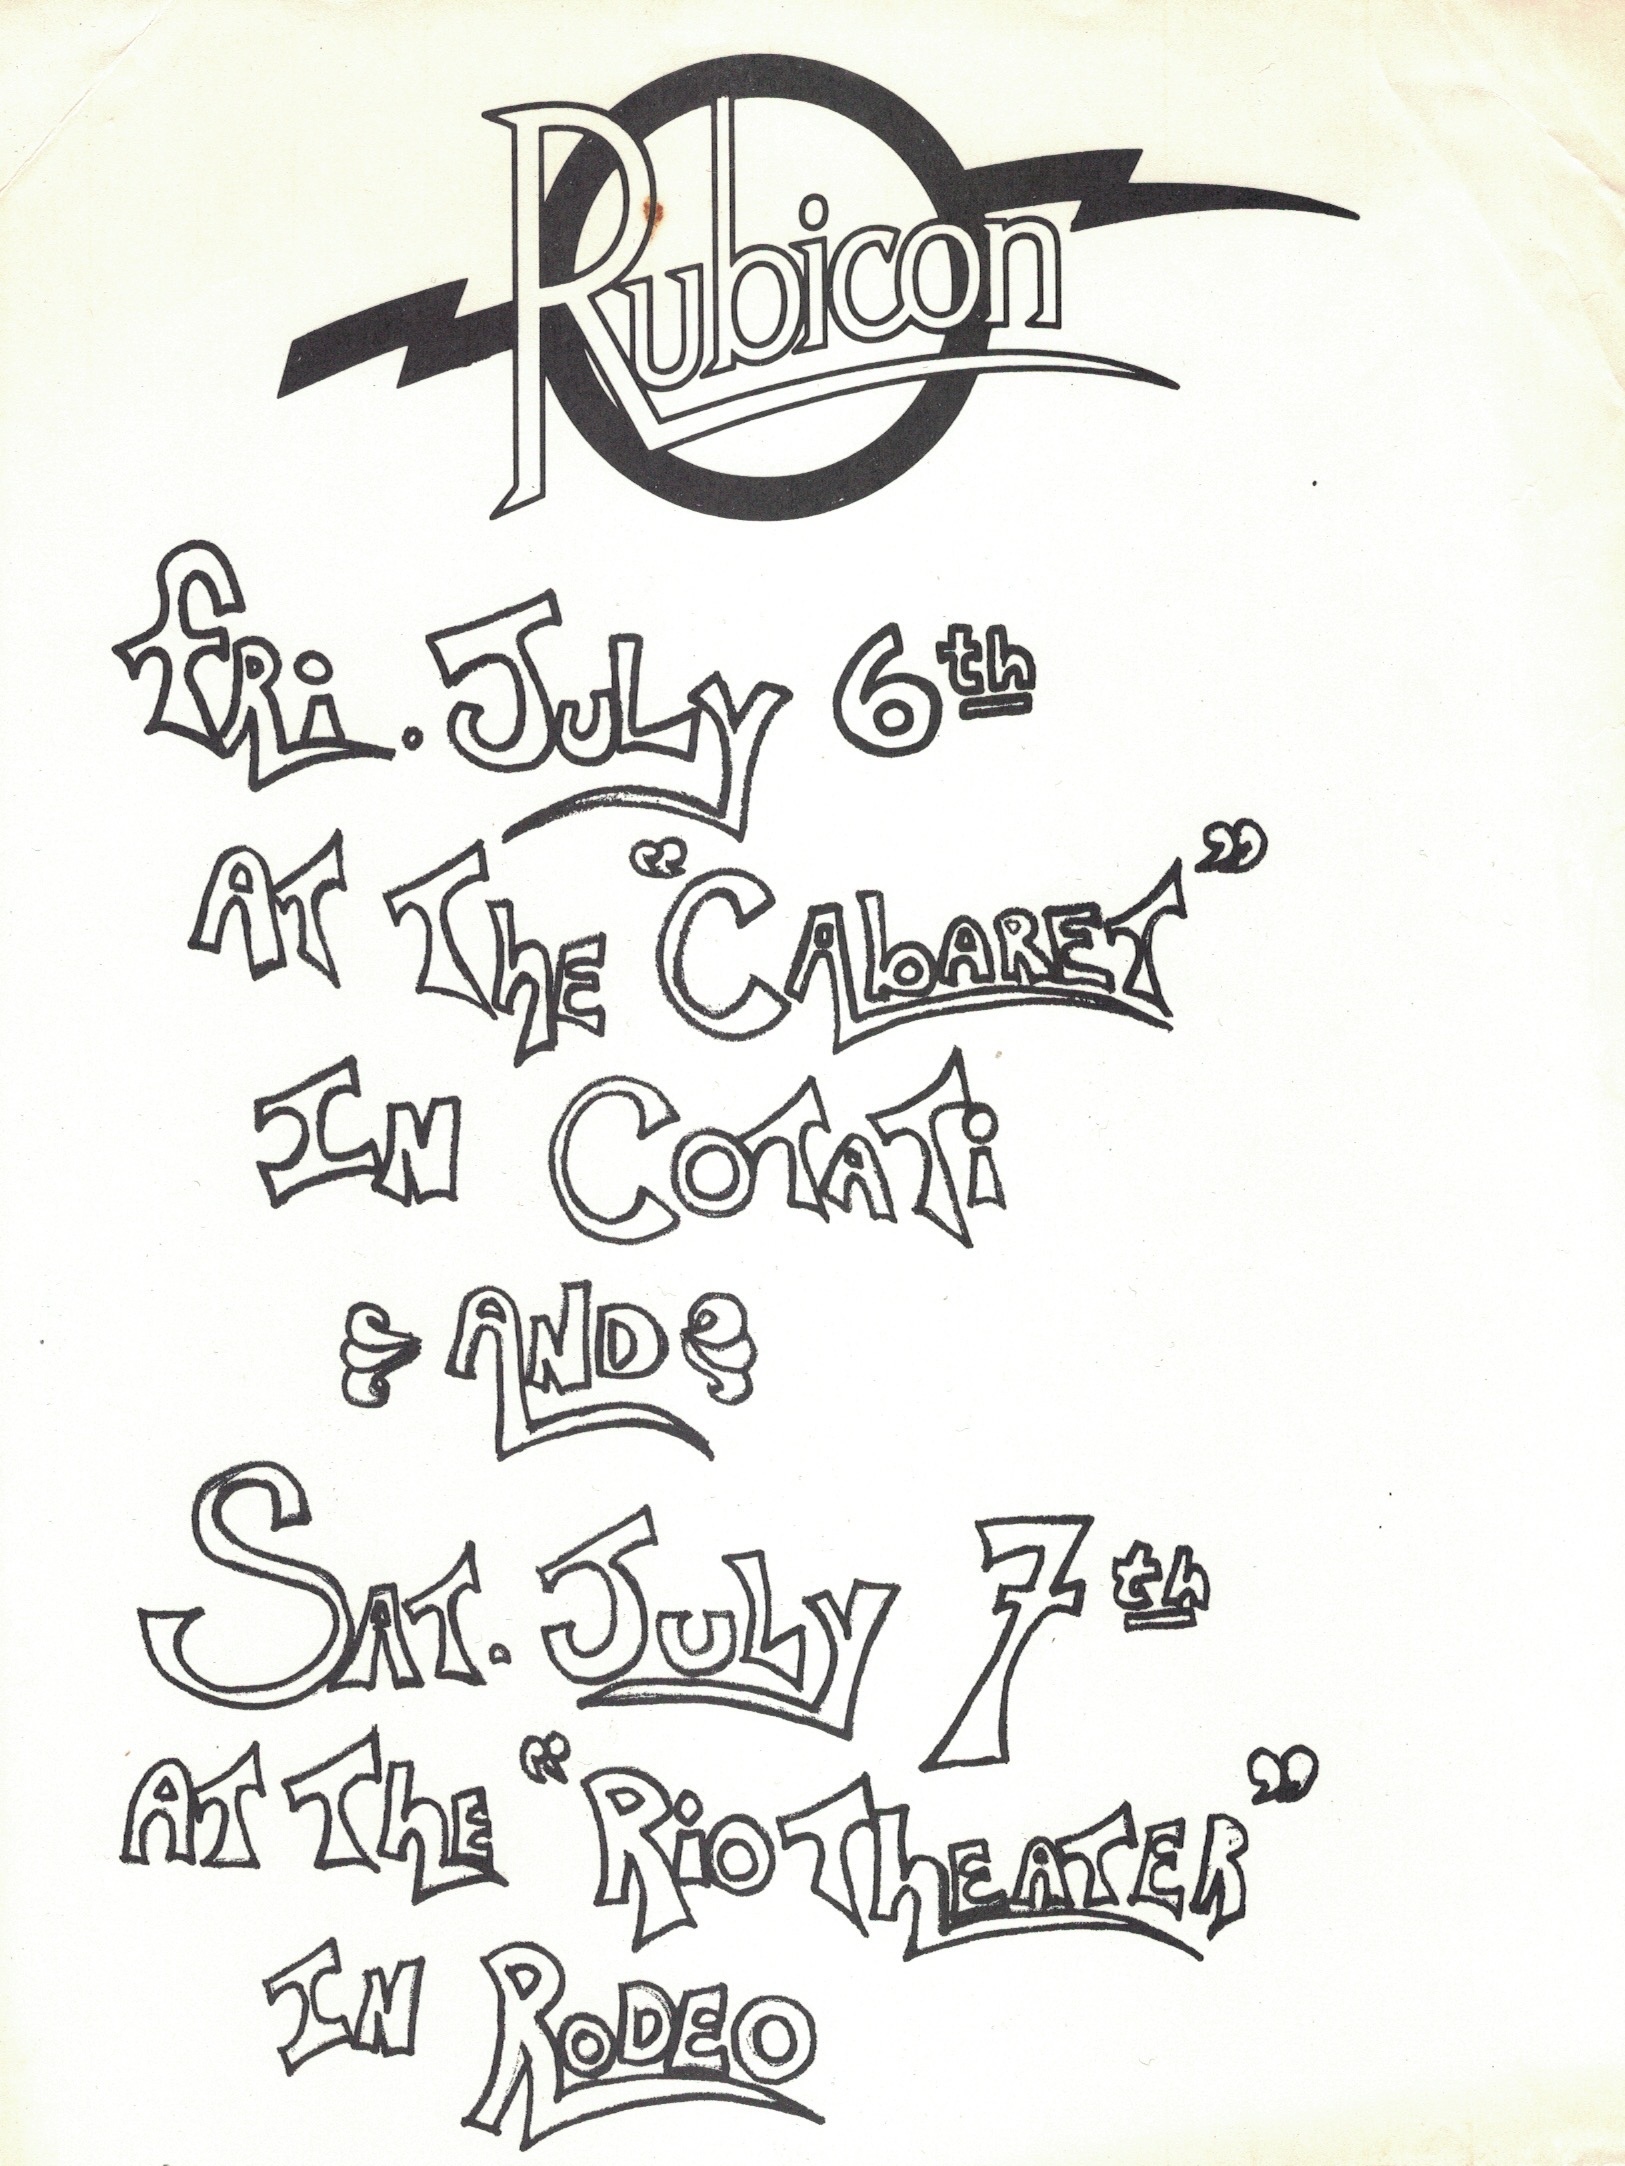 Rubicon
Fri. July 6th
At The "Cabaret"
In Cotati
And
Sat. July 7th
At The "Rio Theater"
In Rodeo